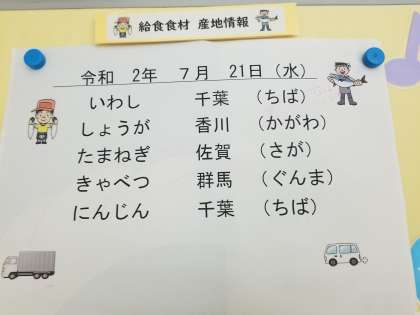 給食食材 産地情報
令和 2年 7月 21日（水）
いわし 千葉 （ちば）
しょうが 香川 （かがわ）
たまねぎ 佐賀 （さが）
きゃべつ 群馬 （ぐんま）
にんじん 千葉 （ちば）